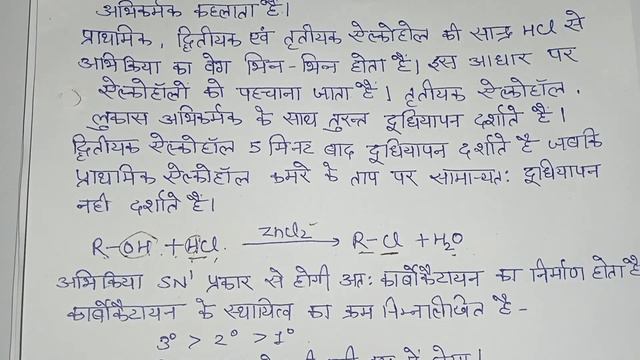 अभिकर्मक कहलाता है।
प्राथमिक, द्वितीयक एवं तृतीयक ऐल्कोहॉल की सान्द्र HCl से
अभिक्रिया का वेग भिन-भिन होता है। इस आधार पर
ऐल्कोहॉलों को पहचाना जाता है। तृतीयक ऐल्कोहॉल.
लुकास अभिकर्मक के साथ तुरन्त दूधियापन दर्शाते हैं।
द्वितीयक ऐल्कोहॉल 5 मिनट बाद दूधियापन दर्शाते है जबकि
प्राथमिक ऐल्कोहॉल कमरे के ताप पर सामान्यतः दूधियापन
नही दर्शाते हैं।
R-OH + HCl ZnCl₂ → R-Cl + H₂O
अभिक्रिया SN¹ प्रकार से होगी अतः कार्बोकैटायन का निर्माण होता है
कार्बोकैटायन के स्थायित्व का क्रम निम्नलिखित है -
3° > 2° > 1°